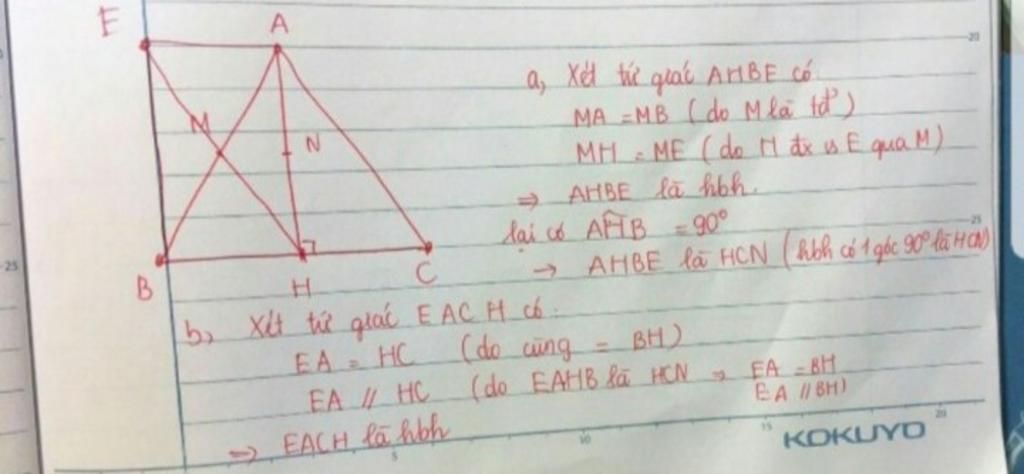 E
A
M
N
B
H
C
a, Xét tứ giác AHBE có
MA = MB (do M là tđ')
MH = ME (do H đx vs E qua M)
⇒ AHBE là hbh.
lại có AHB = 90°
→ AHBE là HCN (hbh có 1 góc 90° là HCN)
b, Xét tứ giác EACH có.
EA = HC (do cùng = BH)
EA // HC (do EAHB là HCN ⇒ EA = BH
EA // BH)
⇒ EACH là hbh
20
25
25
5
10
15
20
KOKUYO